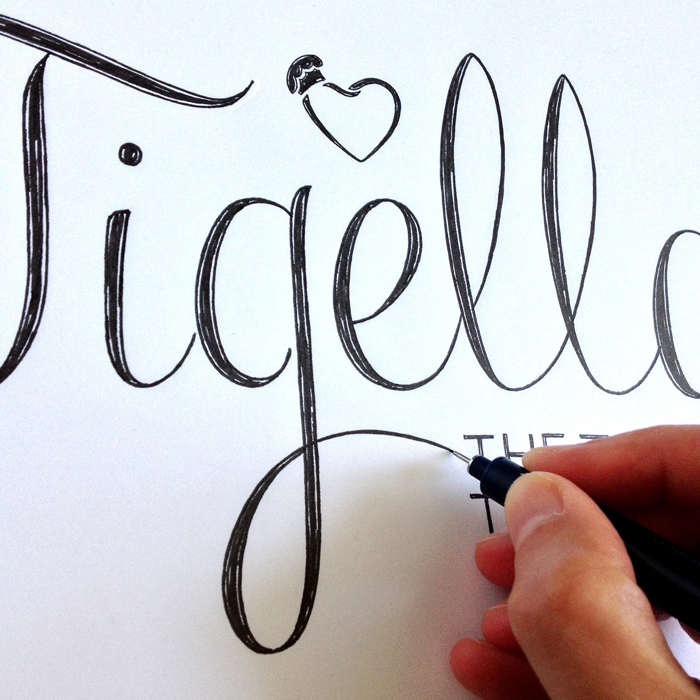 Tigella
THE